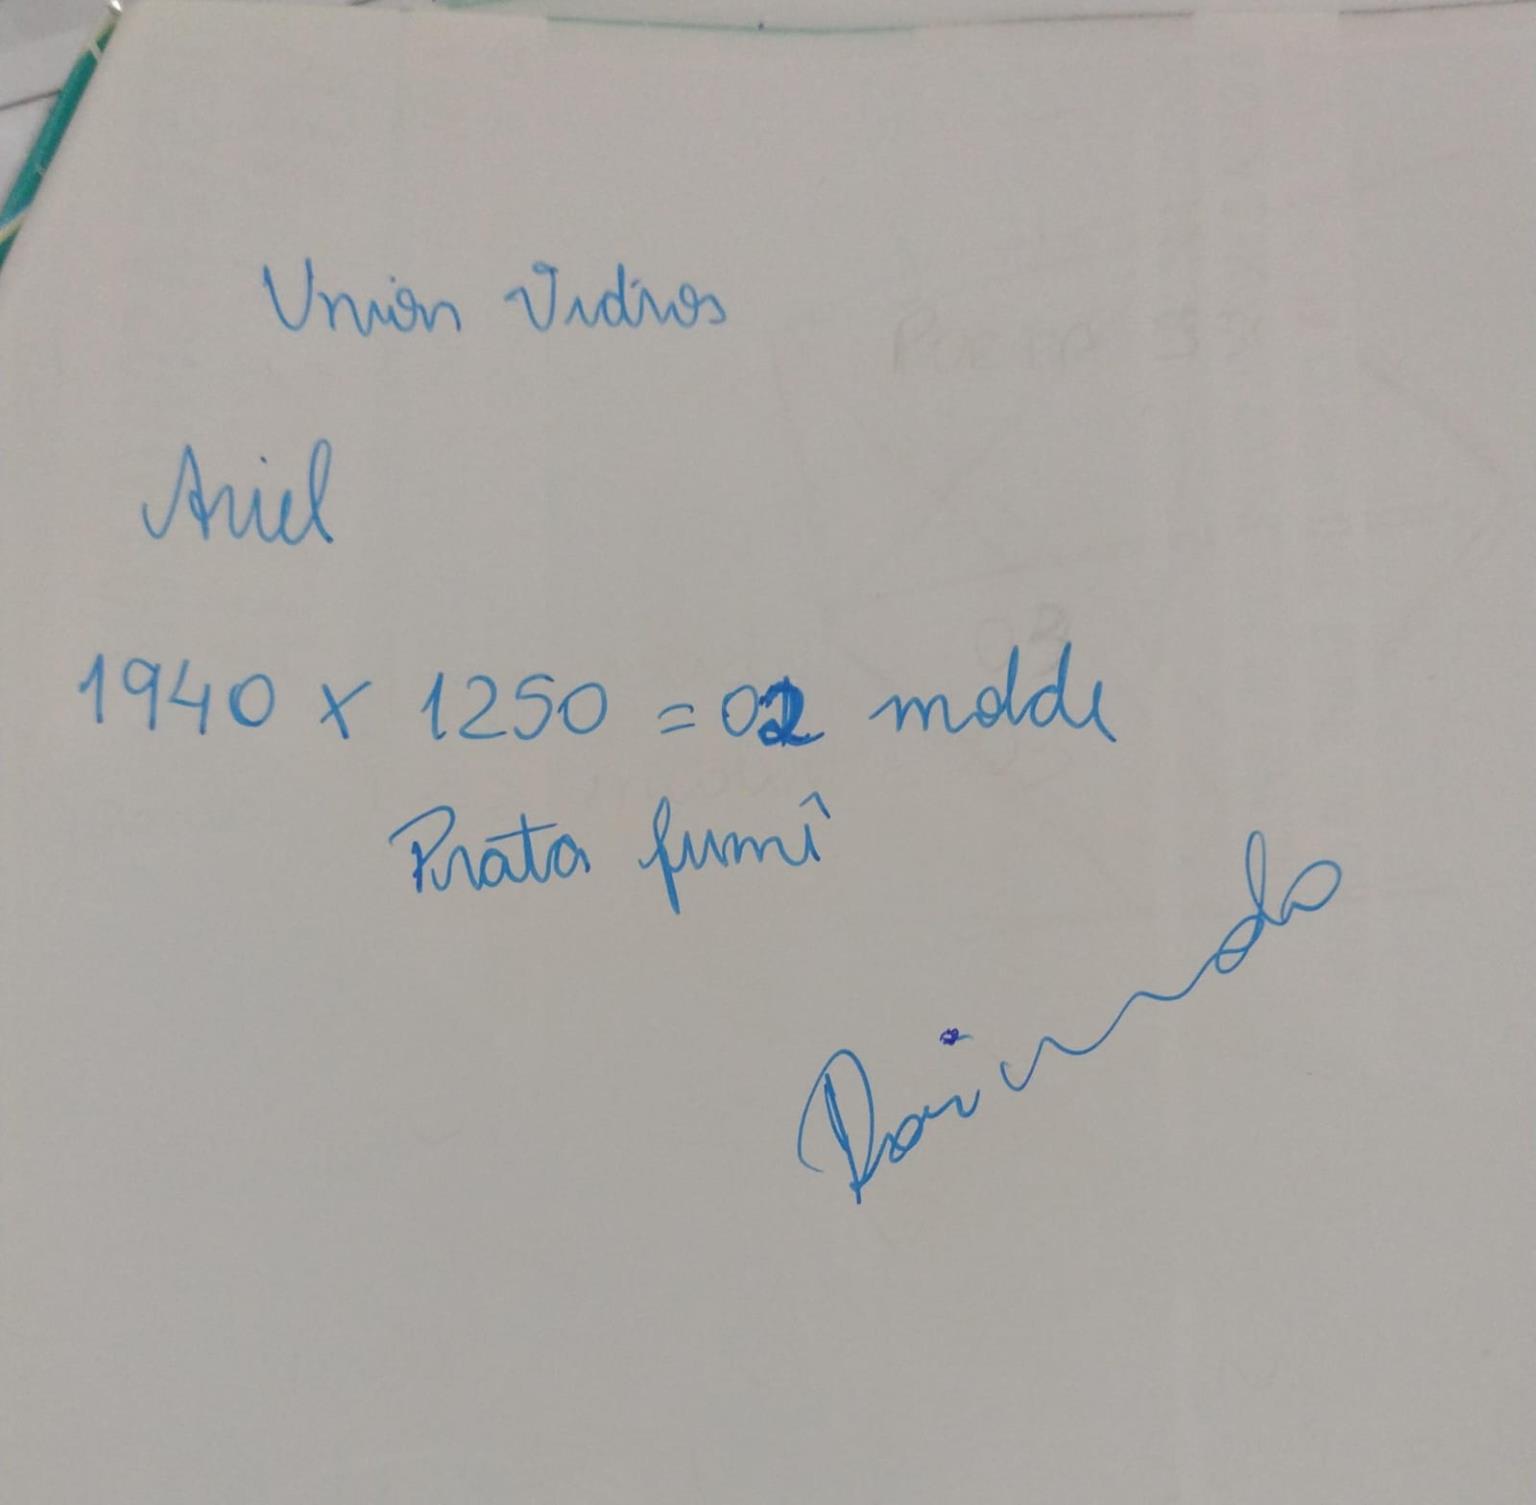 Union Vidros
Ariel
1940 x 1250 = 02 molde
Prata fumê
Raimundo